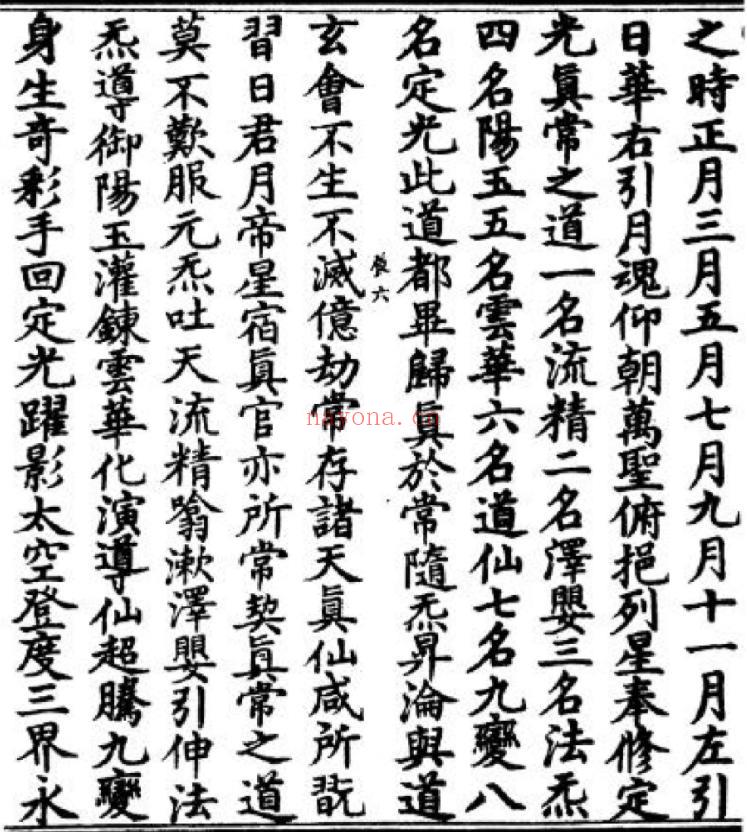 之時正月三月五月七月九月十一月左引
日華右引月魂仰朝萬聖俯挹列星奉修定
光眞常之道一名流精二名澤嬰三名法炁
四名陽玉五名雲華六名道仙七名九變八
名定光此道都畢歸眞於常隨炁昇淪與道
玄會不生不滅億劫常存諸天眞仙咸所翫
習日君月帝星宿眞官亦所常契眞常之道
莫不歎服元炁吐天流精嗡漱澤嬰引伸法
炁導御陽玉灌鍊雲華化演導仙超騰九變
身生奇彩手回定光躍影太空登度三界永
nayona.cn